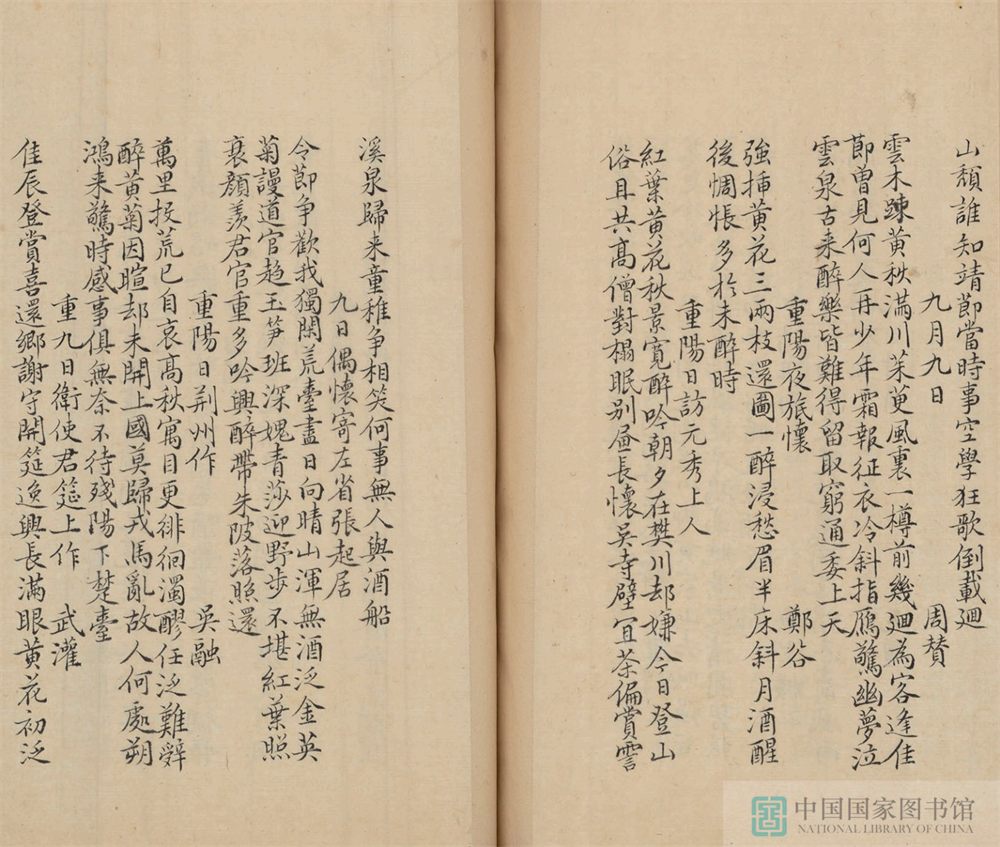 山頹誰知靖節當時事空學狂歌倒載廻
九月九日 周賛
雲木踈黄秋滿川茱萸風裏一樽前幾廻為客逢佳
節曽見何人再少年霜報征衣冷斜指鴈驚幽夢泣
雲泉古来醉樂皆難得留取窮通委上天
重陽夜旅懷 鄭谷
強揷黄花三兩枝還圖一醉浸愁眉半床斜月酒醒
後惆悵多扵未醉時
重陽日訪元秀上人
紅葉黄花秋景寛醉吟朝夕在樊川却嫌今日登山
俗且共髙僧對榻眠别𦘕長懷吳寺壁冝茶偏賞霅
溪泉歸来童稚争相笑何事無人與酒船
九日偶懷寄左省張起居
令節争歡我獨閑荒臺盡日向晴山渾無酒泛金英
菊謾道官趍玉笋班深愧青莎迎野步不堪紅葉照
衰顔羨君官重多吟興醉帶朱陂落照還
重陽日荆州作 吳融
萬里投荒已自哀髙秋寓目更徘徊濁醪任泛難辤
醉黄菊因暄却未開上國莫歸戎馬亂故人何處朔
鴻来驚時感事俱無奈不待殘陽下楚臺
重九日衛使君筵上作 武灌
佳辰登賞喜還鄉謝守開筵逸興長滿眼黄花初泛
中国国家图书馆
NATIONAL LIBRARY OF CHINA